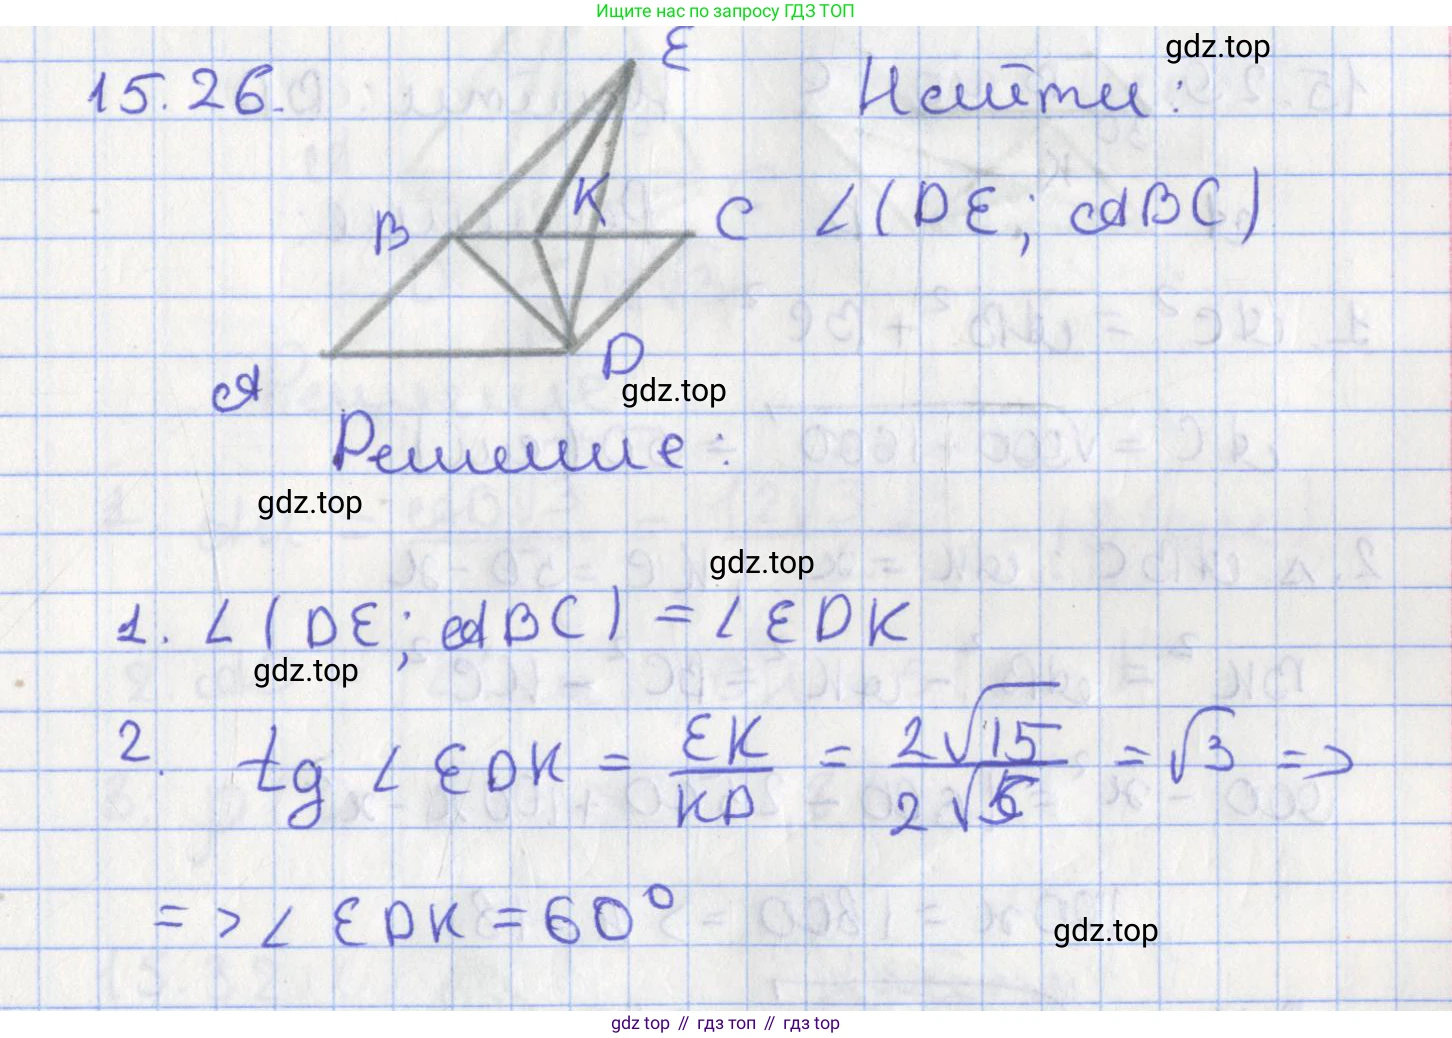 Ищите нас по запросу ГДЗ ТОП
gdz.top
15.26.
E
Найти:
K
B
C
∠(DE; ABC)
A
D
gdz.top
Решение:
gdz.top
gdz.top
1. ∠(DE; ABC) = ∠EDK
gdz.top
2. tg ∠EDK = EK/KD = 2√15/2√5 = √3 =>
=> ∠EDK = 60°
gdz.top
gdz top // гдз топ // гдз top